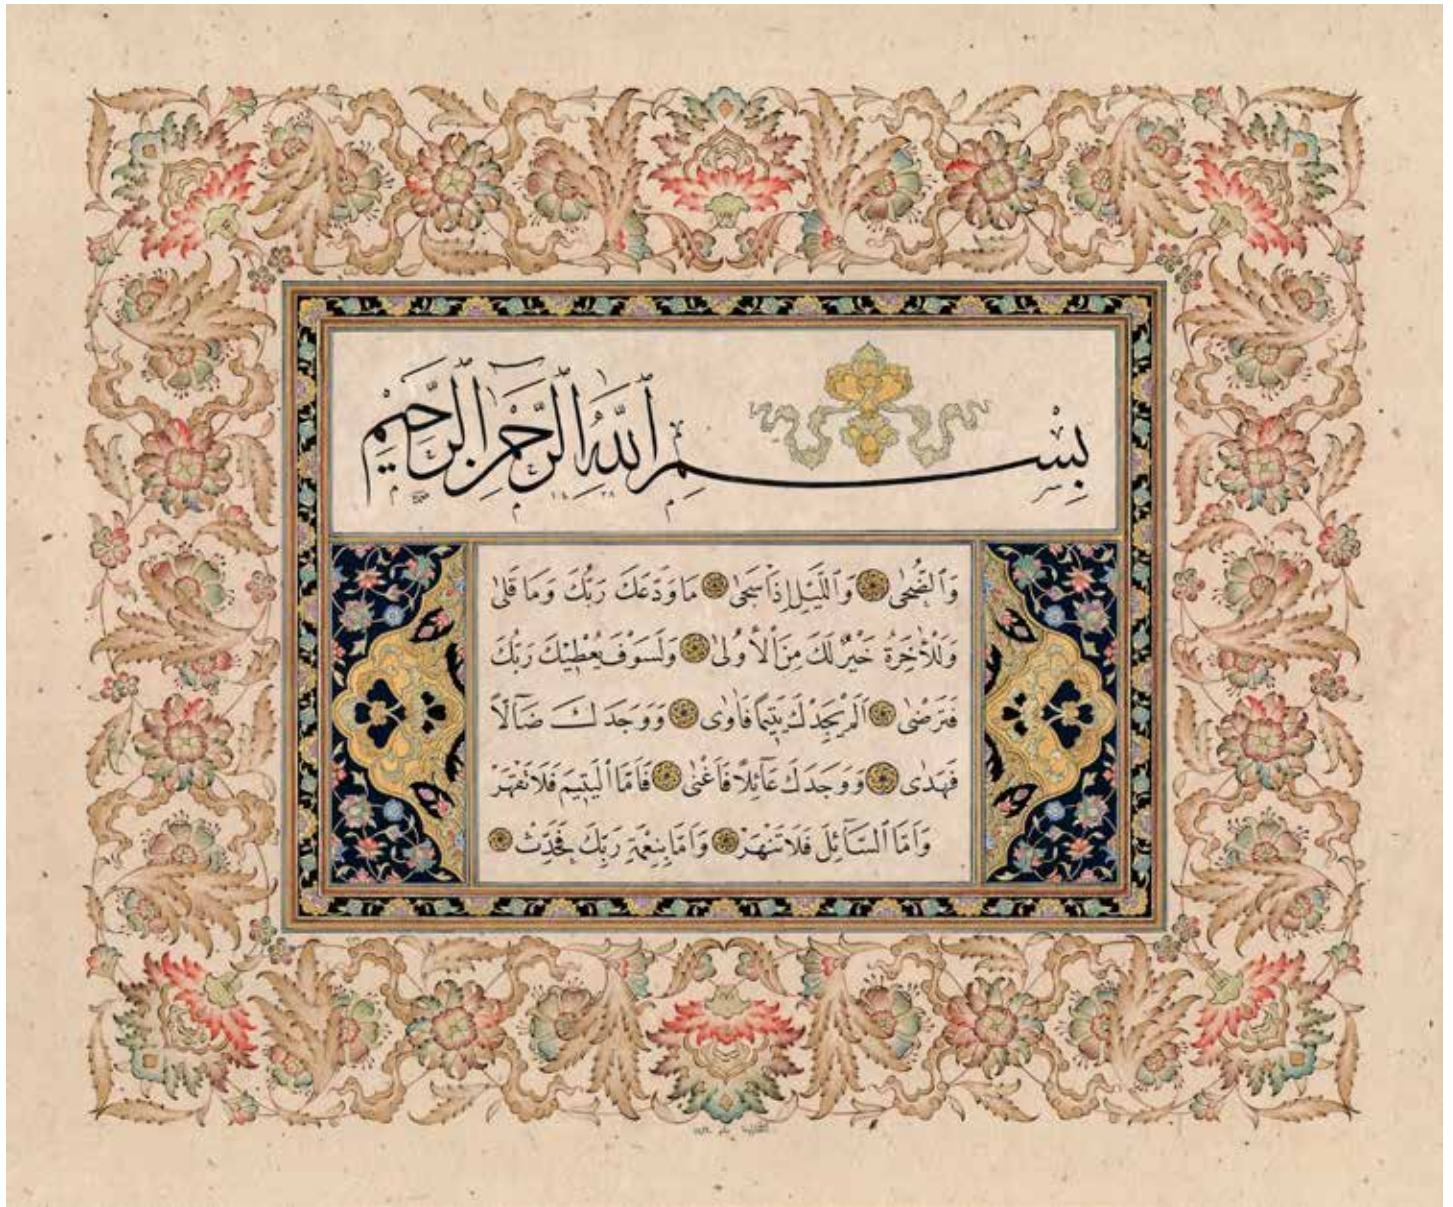 بِسْمِ ٱللَّهِ ٱلرَّحْمٰنِ ٱلرَّحِيمِ
وَٱلضُّحٰى وَٱلَّيْلِ إِذَا سَجٰى مَا وَدَّعَكَ رَبُّكَ وَمَا قَلٰى
وَلَلْاٰخِرَةُ خَيْرٌ لَكَ مِنَ ٱلْأُولٰى وَلَسَوْفَ يُعْطِيكَ رَبُّكَ
فَتَرْضٰى اَلَمْ يَجِدْكَ يَتِيمًا فَاٰوٰى وَوَجَدَكَ ضَآلًّا
فَهَدٰى وَوَجَدَكَ عَآئِلًا فَاَغْنٰى فَاَمَّا ٱلْيَتِيمَ فَلَا تَقْهَرْ
وَاَمَّا ٱلسَّآئِلَ فَلَا تَنْهَرْ وَاَمَّا بِنِعْمَةِ رَبِّكَ فَحَدِّثْ